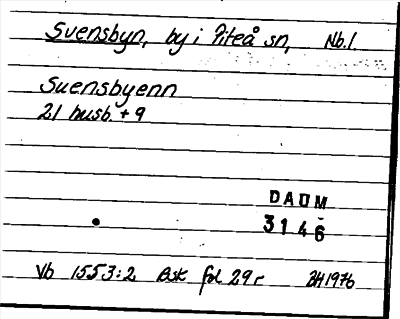 Svensbyn, by i Piteå sn, Nb.l
Suensbyenn
21 husb. + 9
DAUM
3146
Vb 1553:2 Bsk fol 29r BH1976